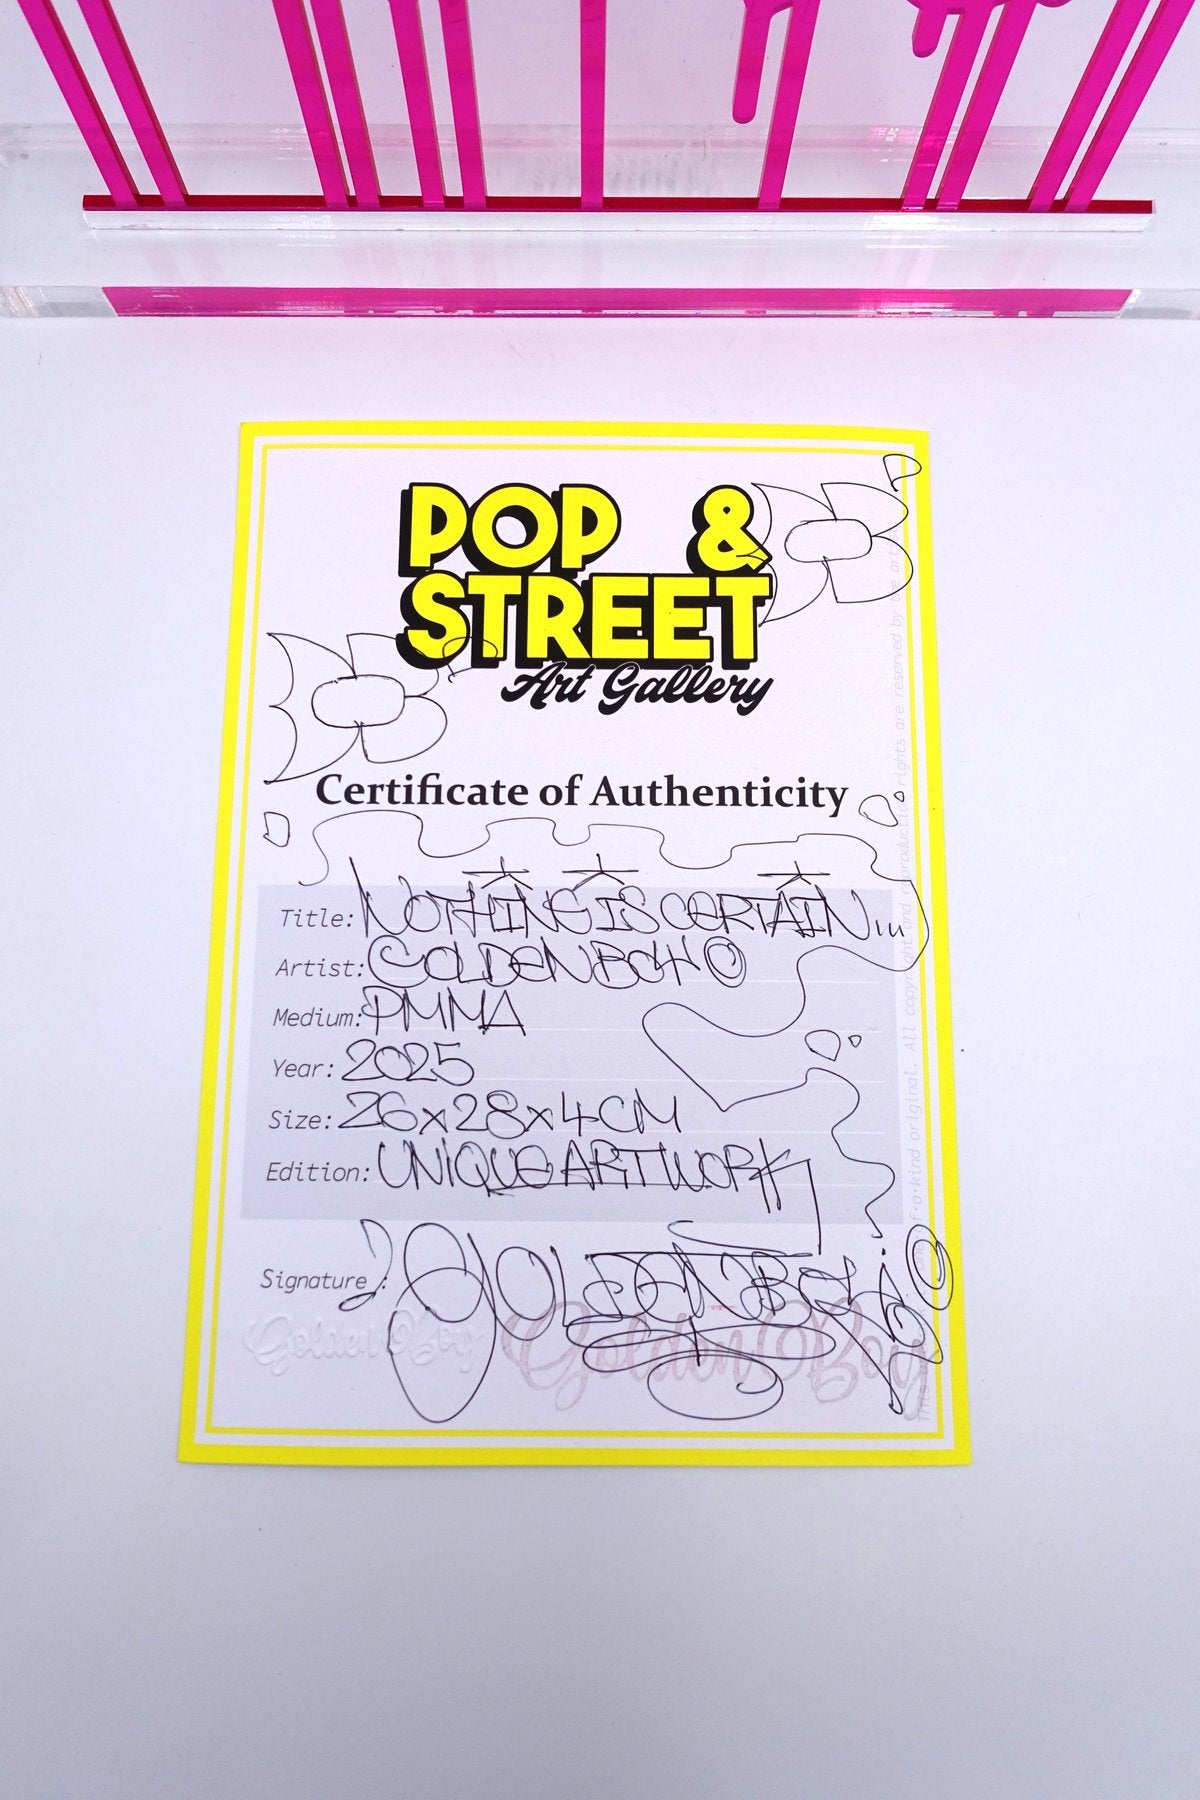 POP &
STREET
Art Gallery
Certificate of Authenticity
Title: NOTHING IS CERTAIN...
Artist: GOLDENBOY ©
Medium: PMMA
Year: 2025
Size: 26x28x4CM
Edition: UNIQUE ARTWORK
Signature: GOLDENBOY ©
GoldenBoy GoldenBoy
original. All copyright and reproduction rights are reserved by the